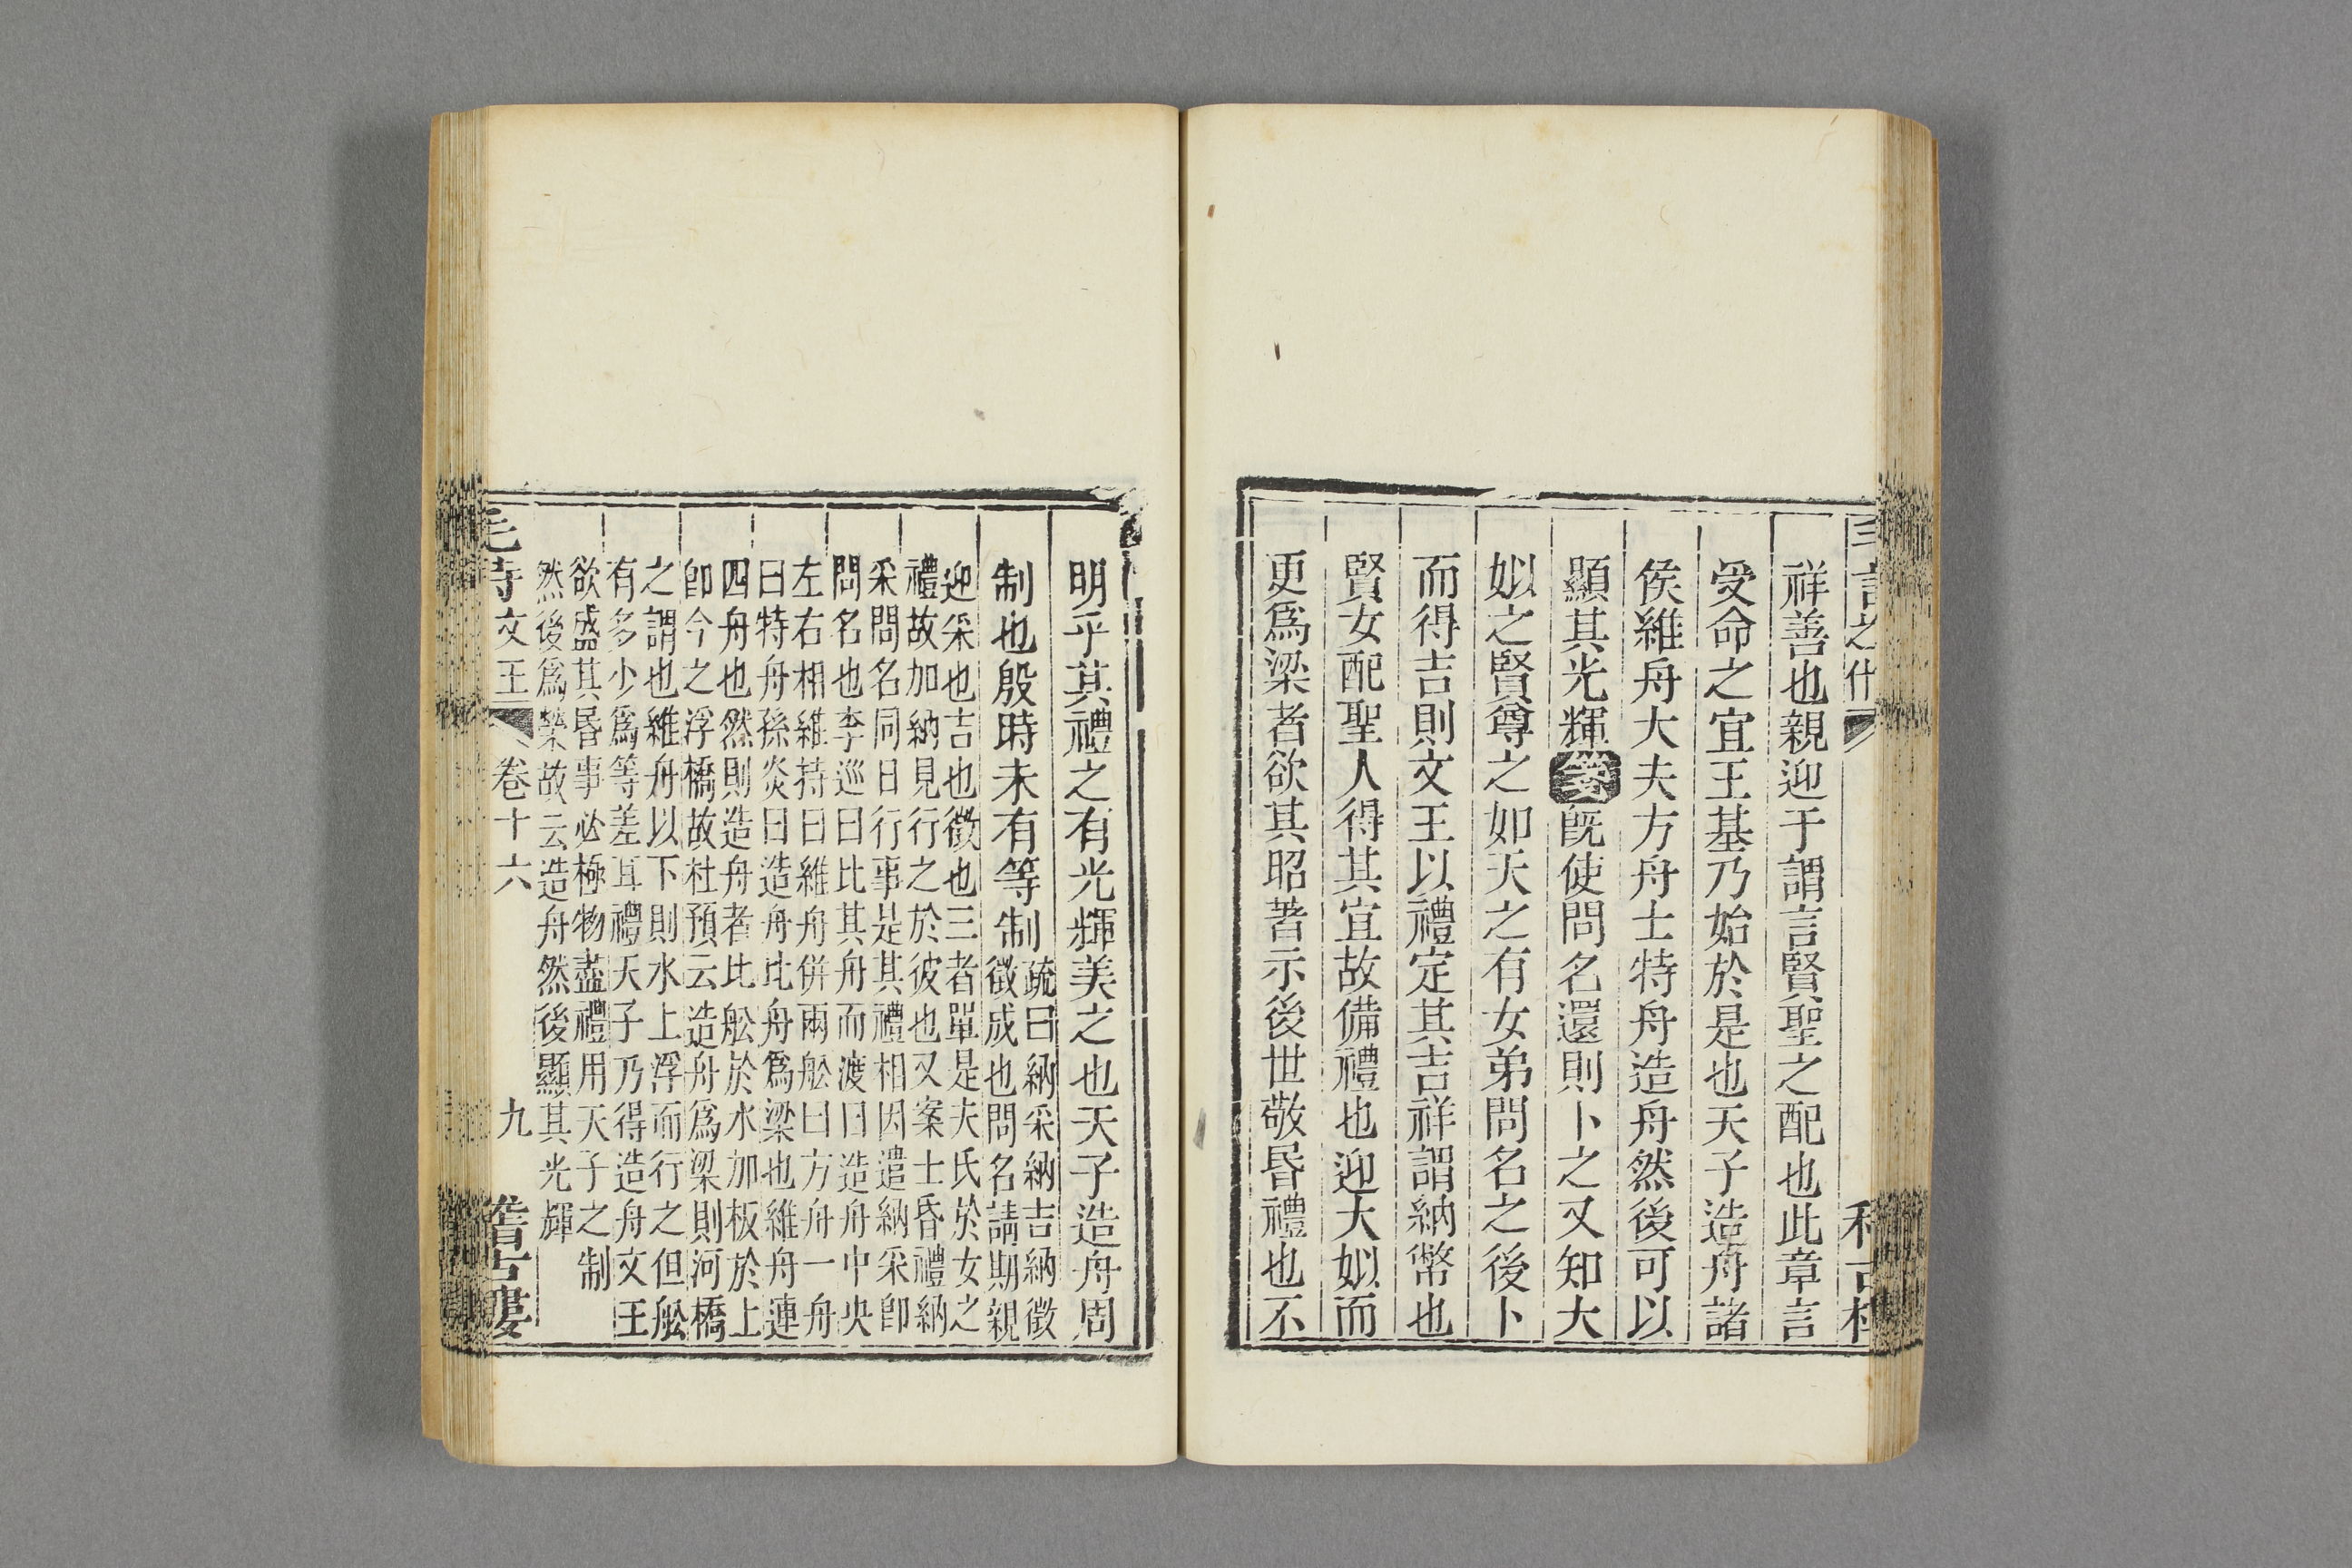 祥善也親迎于謂言賢聖之配也此章言
受命之宜王基乃始於是也天子造舟諸
侯維舟大夫方舟士特舟造舟然後可以
顯其光輝箋旣使問名還則卜之又知大
姒之賢尊之如天之有女弟問名之後卜
而得吉則文王以禮定其吉祥謂納幣也
賢女配聖人得其宜故備禮也迎大姒而
更爲梁者欲其昭著示後世敬昬禮也不
明乎其禮之有光輝美之也天子造舟周
制也殷時未有等制
疏曰納采納吉納徵
徵成也問名請期親
迎采也吉也徵也三者單是夫氏於女之
禮故加納見行之於彼也又案士昏禮納
采問名同日行事是其禮相因遣納采卽
問名也李巡曰比其舟而渡曰造舟中央
左右相維持曰維舟併兩舩曰方舟一舟
曰特舟孫炎曰造舟比舟爲梁也維舟連
四舟也然則造舟者比舩於水加板於上
卽今之浮橋故杜預云造舟爲梁則河橋
之謂也維舟以下則水上浮而行之但舩
有多少爲等差耳禮天子乃得造舟文王
欲盛其昬事必極物盡禮用天子之制
然後爲榮故云造舟然後顯其光輝
毛詩文王 卷十六 九 稽古樓